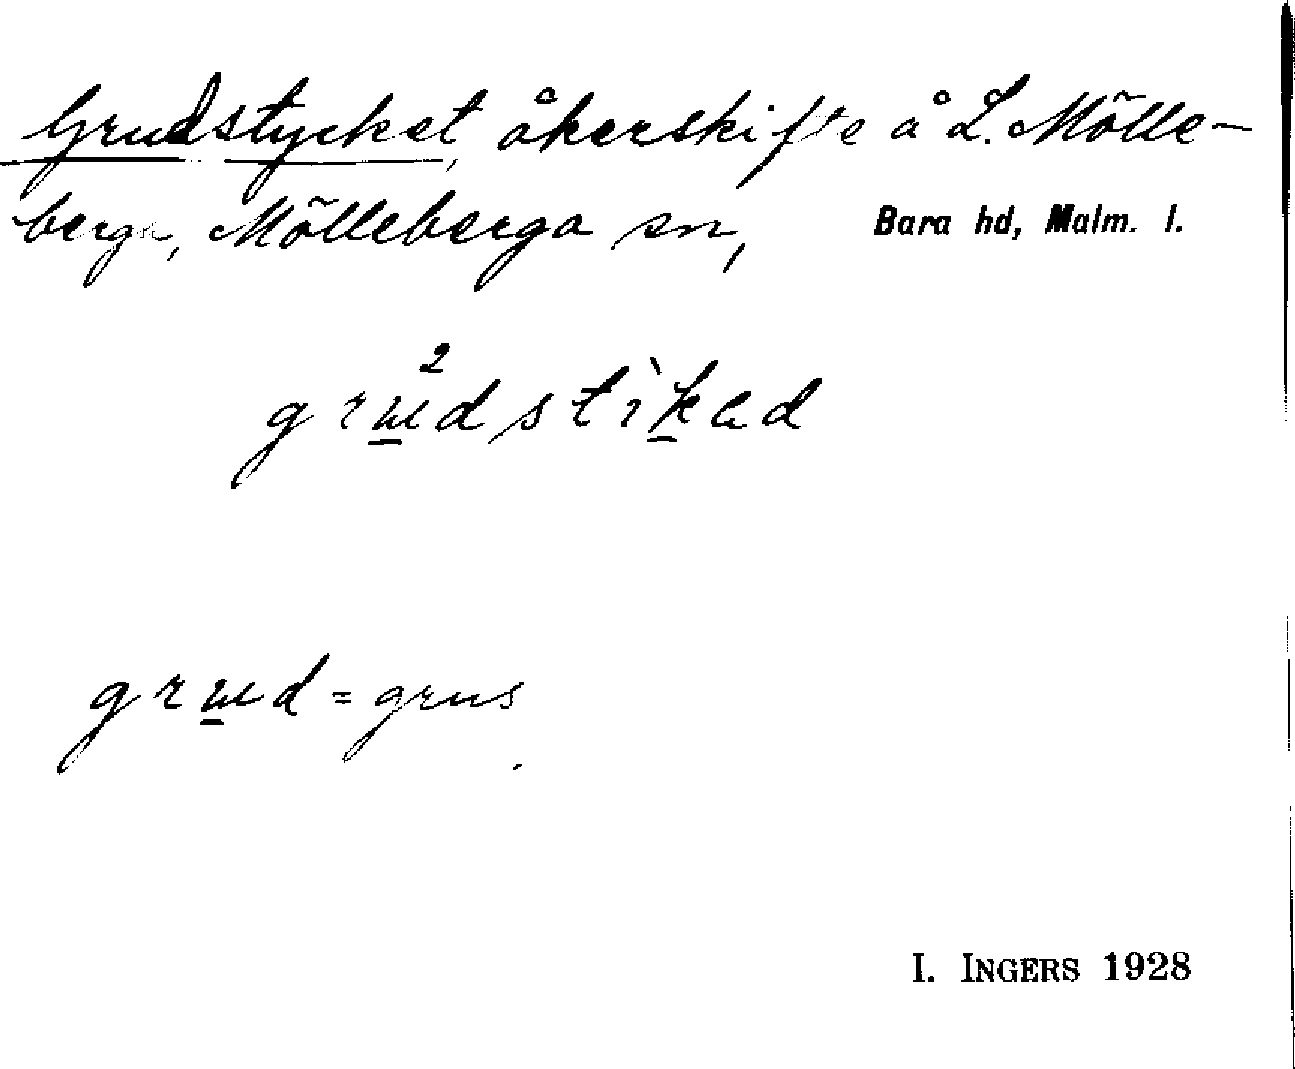 Grudstycket, åkerskifte å L. Mölle-
berga, Mölleberga sn, Bara hd, Malm. l.
grɯ̲²dstìk̲ad
grɯ̲d = grus
I. INGERS 1928